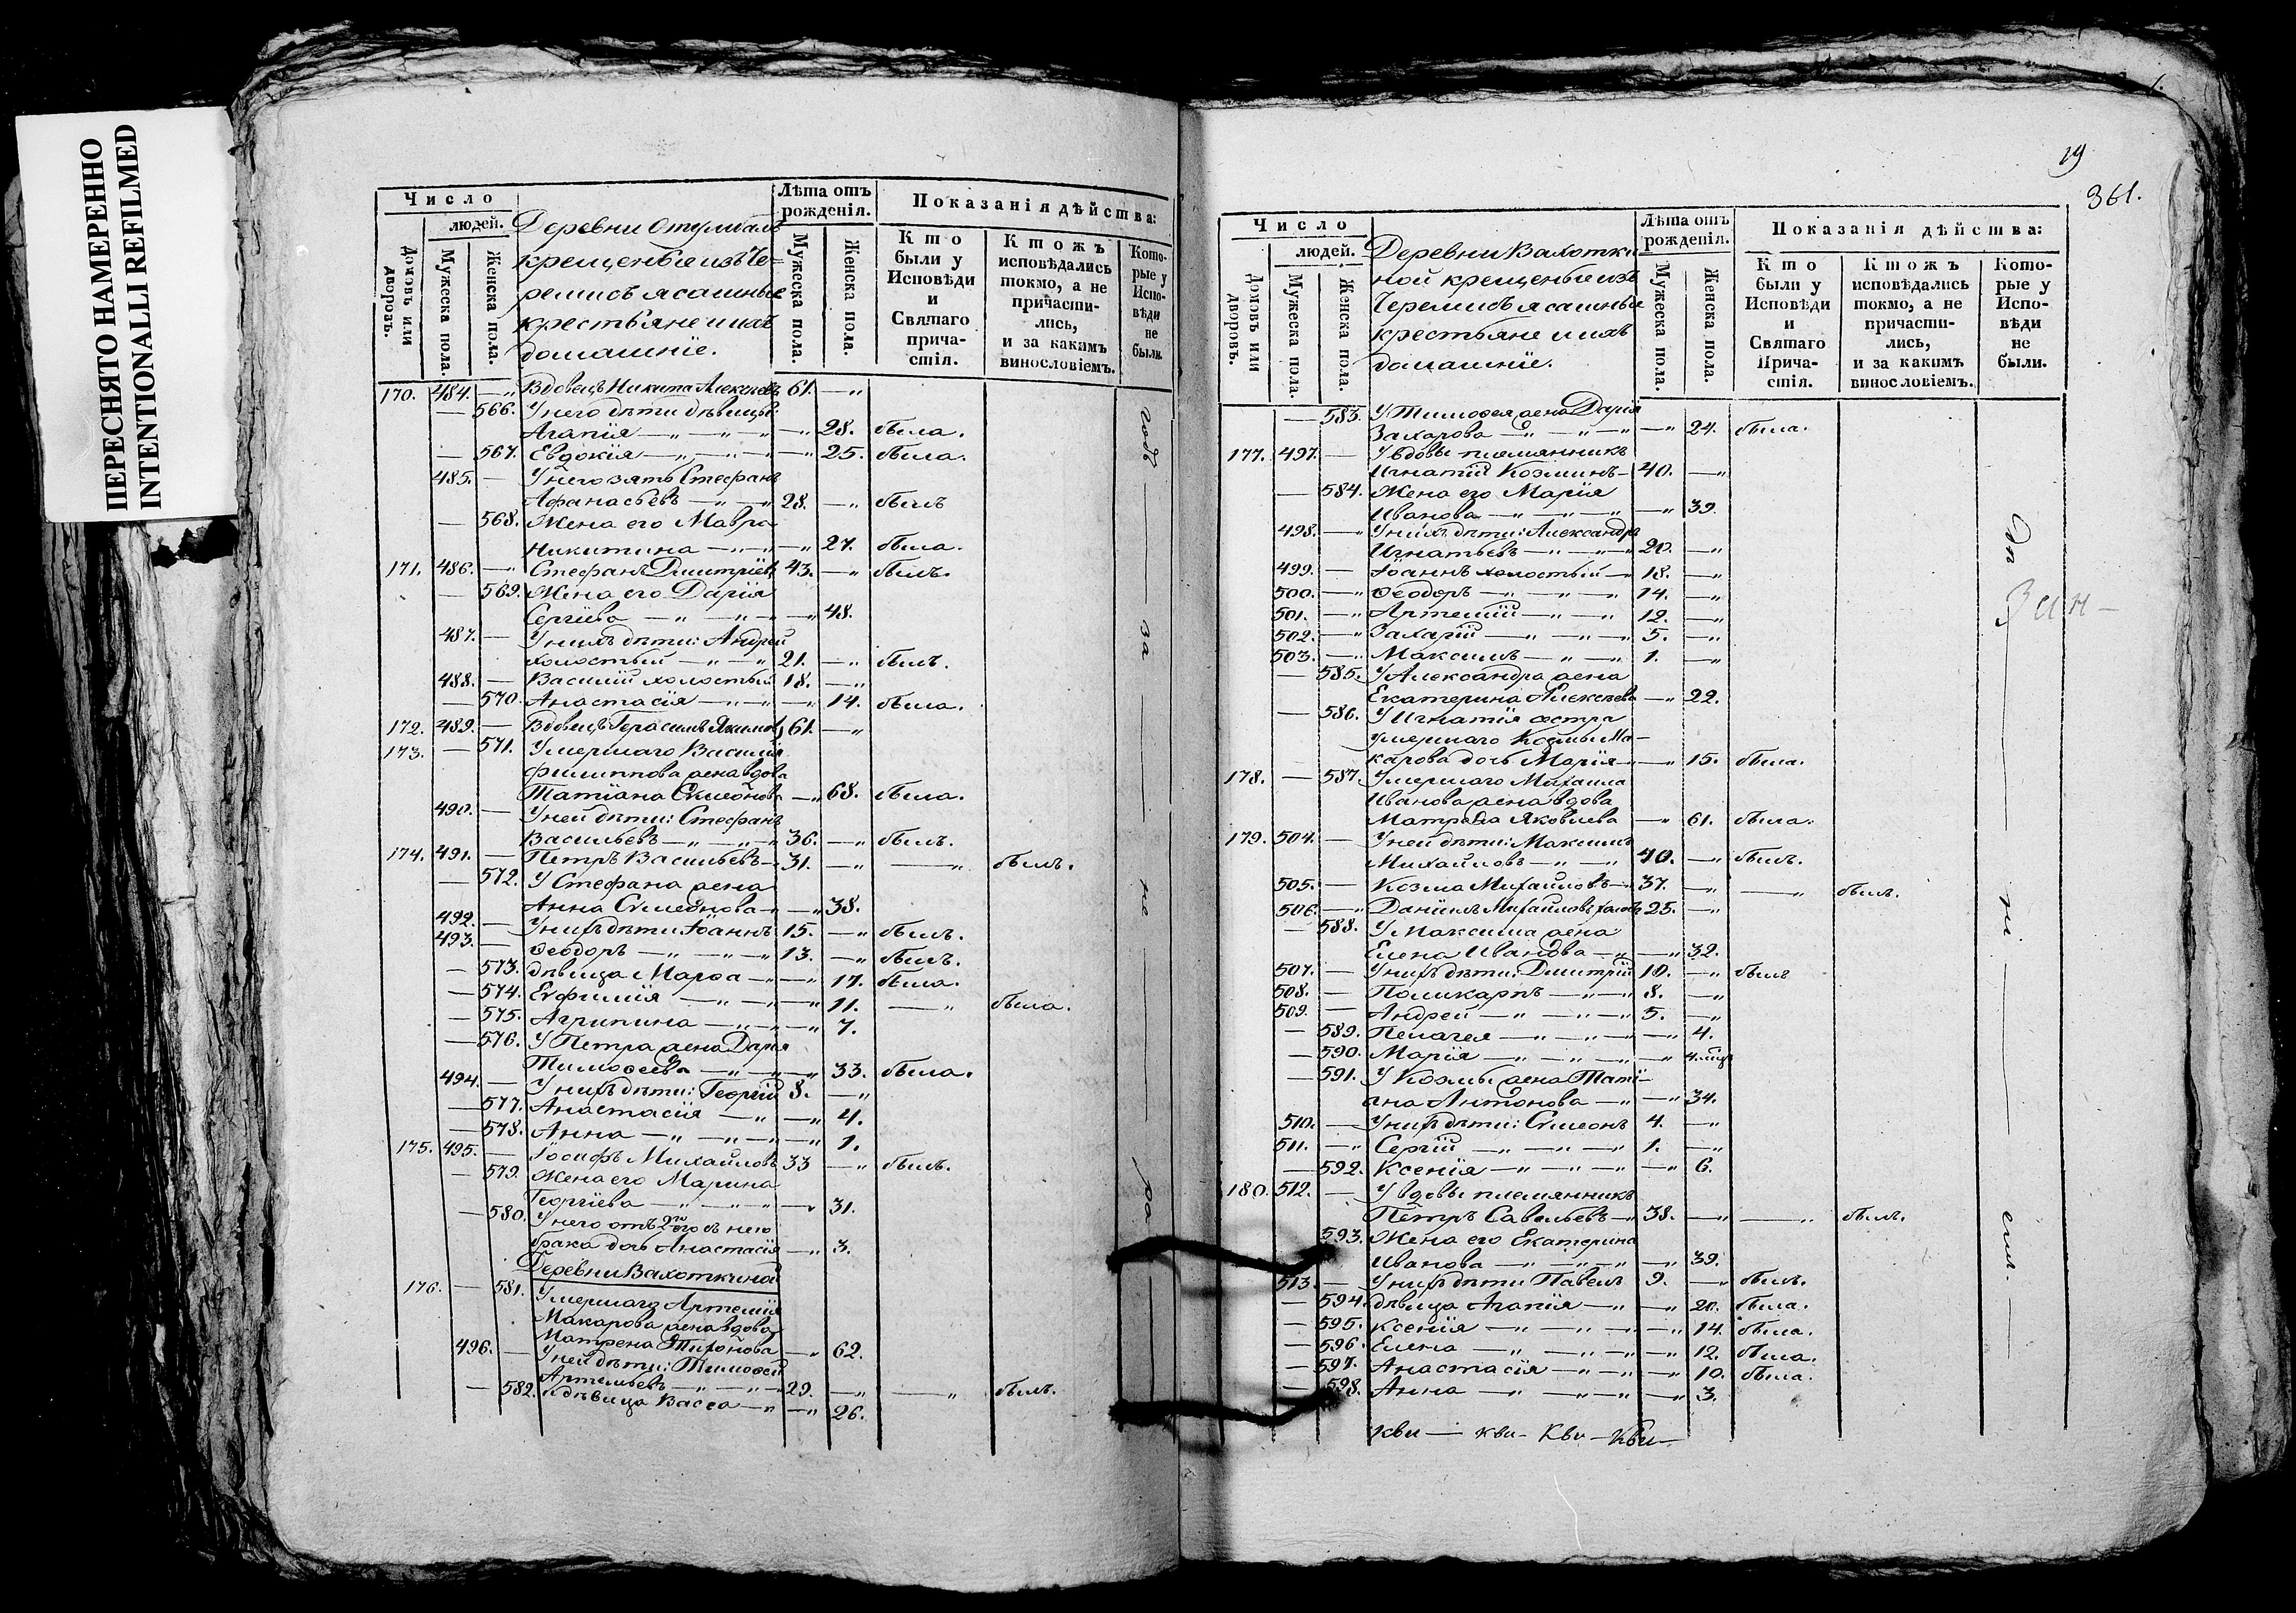 ПЕРЕСНЯТО НАМЕРЕННО
INTENTIONALLI REFILMED
Число
людей.
Домовъ или дворовъ.
Мужеска пола.
Женска пола.
Деревни
крещеныя изъ Че-
ремисъ ясашные
крестьяне и ихъ
домашнїе.
Лѣта отъ рожденїя.
Мужеска пола.
Женска пола.
Показанїя дѣйства:
Кто были у Исповѣди и Святаго прича-стїя.
Ктожъ исповѣдались токмо, а не причасти-лись, и за какимъ винословїемъ.
Кото-рые у Испо-вѣди не были.
170. 484. —„ Вдовецъ Никита Алексѣевъ 61. —„
— 566. У него дѣти дѣвицы:
Агапїя —„ —„ —„ 28. была.
— 567. Евдокїя —„ —„ —„ 25. была.
485. — У него зять Стефанъ
Афанасьевъ —„ —„ 28. —„ былъ
— 568. Жена его Мавра
Никитина —„ —„ 27. была.
171. 486. —„ Стефанъ Димитрїевъ 43. —„ былъ.
— 569. Жена его Дарїя
Сергїева —„ —„ —„ 48.
487. — У нихъ дѣти: Андрей
холостый —„ —„ 21. —„ былъ.
488. — Василїй холостый 18. —„
— 570. Анастасїя —„ —„ —„ 14. была.
172. 489. — Вдовецъ Герасимъ Якимовъ 61. —„
173. — 571. Умершаго Василїя
Филиппова жена вдова
Татїана Симеонова —„ 68. была.
490. — У ней дѣти: Стефанъ
Васильевъ —„ —„ 36. —„ былъ.
174. 491. — Петръ Васильевъ —„ 31. —„ —„ былъ.
— 572. У Стефана жена
Анна Симеонова —„ —„ 38.
492. — У нихъ дѣти Їоаннъ 15. —„ былъ.
493. — Ѳеодоръ —„ —„ —„ 13. —„ былъ.
— 573. дѣвица Марѳа —„ —„ 17. была.
— 574. Евфимїя —„ —„ —„ 11. —„ была.
— 575. Агрипина —„ —„ —„ 7.
— 576. У Петра жена Дарїя
Тимоѳеева —„ —„ —„ 33. была.
494. — У нихъ дѣти: Георгїй 8. —„
— 577. Анастасїя —„ —„ —„ 4.
— 578. Анна —„ —„ —„ —„ 1.
175. 495. — Їосифъ Михайловъ 33 —„ былъ.
— 579. Жена его Марина
Георгїева —„ —„ —„ 31.
— 580. У него отъ 2го съ нею
брака дочь Анастасїя —„ 3.
Деревни Вахоткиной
176. — 581. Умершаго Артемїя
Макарова жена вдова
Матрена Тихонова —„ 62.
496. — У ней дѣти: Тимоѳей
Артемьевъ —„ —„ 29. —„ —„ былъ.
— 582. дѣвица Васса —„ —„ 26.
годъ — за — не — ра
19
361.
Число
людей.
Домовъ или дворовъ.
Мужеска пола.
Женска пола.
Деревни Вахотки
ной крещеныя изъ
Черемисъ ясашные
крестьяне и ихъ
домашнїе.
Лѣта отъ рожденїя.
Мужеска пола.
Женска пола.
Показанїя дѣйства:
Кто были у Исповѣди и Святаго Прича-стїя.
Ктожъ исповѣдались токмо, а не причасти-лись, и за какимъ винословїемъ.
Кото-рые у Испо-вѣди не были.
— 583. У Тимоѳея жена Дарїя
Захарова —„ —„ —„ 24. была.
177. 497. — У вдовы племянникъ
Игнатїй Козминъ — 40. —„
— 584. Жена его Марїя
Иванова —„ —„ —„ 39.
498. —„ У нихъ дѣти: Александръ
Игнатьевъ —„ —„ 20. —„
499. — Їоаннъ холостый — 18. —„
500. —„ Ѳеодоръ —„ —„ —„ 14. —„
501. —„ Артемїй —„ —„ 12. —„
502. —„ Захарїй —„ —„ —„ 5. —„
503. —„ Максимъ —„ —„ 1. —„
— 585. У Александра жена
Екатерина Алексѣева —„ 22.
— 586. У Игнатїя сестра
умершаго Козмы Ма-
карова дочь Марїя —„ 15. была.
178. — 587. Умершаго Михаила
Иванова жена вдова
Матрена Яковлева —„ 61. была.
179. 504. — У ней дѣти: Максимъ
Михайловъ —„ —„ 40. —„ былъ.
505. — Козма Михайловъ —„ 37. —„ —„ былъ.
506. —„ Данїилъ Михайловъ холос 25. —„
— 588. У Максима жена
Елена Иванова —„ —„ 32.
507. — У нихъ дѣти: Димитрїй 10. —„ былъ
508. — Поликарпъ —„ —„ 8. —„
509. — Андрей —„ —„ —„ 5. —„
— 589. Пелагея —„ —„ —„ —„ 4.
— 590. Марїя —„ —„ —„ —„ 4. мцъ
— 591. У Козмы жена Татї-
ана Антонова —„ —„ 34.
510. — У нихъ дѣти: Симеонъ 4. —„
511. —„ Сергїй —„ —„ —„ 1. —„
— 592. Ксенїя —„ —„ —„ —„ 6.
180. 512. — У вдовы племянникъ
Петръ Савельевъ —„ 38. —„ —„ былъ.
593. Жена его Екатерина
Иванова —„ —„ —„ 39.
513. — У нихъ дѣти Павелъ 9. —„ былъ.
— 594. дѣвица Агапїя —„ —„ 20. была.
— 595. Ксенїя —„ —„ —„ 14. была.
— 596. Елена —„ —„ —„ 12. была.
— 597. Анастасїя —„ —„ —„ 10. была.
— 598. Анна —„ —„ —„ 3.
кви — кви — Кви — Кви —